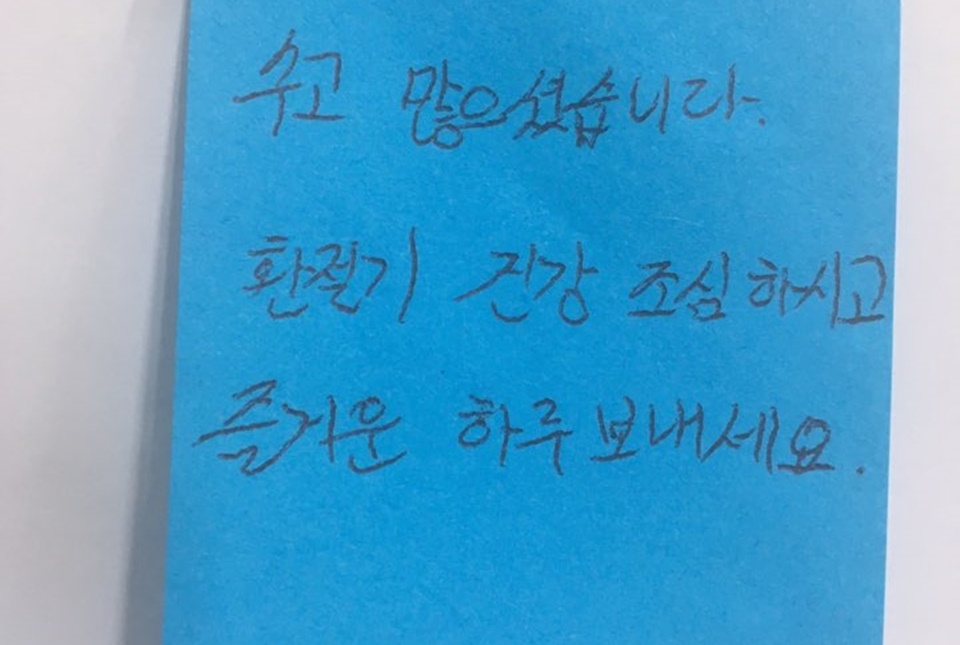 수고 많으셨습니다.
환절기 건강 조심하시고
즐거운 하루 보내세요.